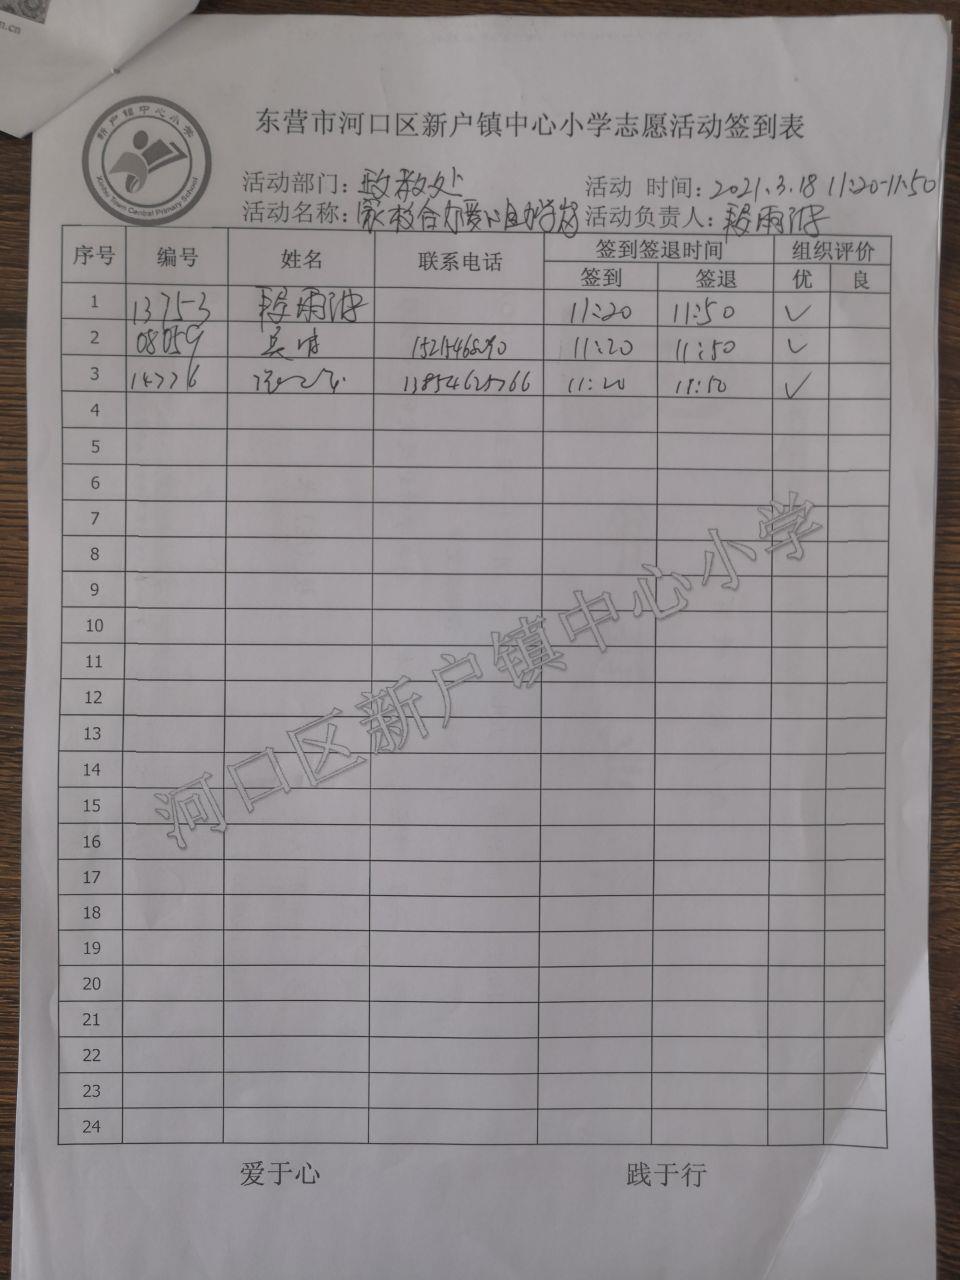 n.cn
新户镇中心小学
Xinhu Town Central Primary School
东营市河口区新户镇中心小学志愿活动签到表
活动部门：政教处 活动 时间：2021.3.18 11:20-11:50
活动名称：家校合力爱心护学岗 活动负责人：
序号 编号 姓名 联系电话 签到签退时间 组织评价
签到 签退 优 良
1 13753 11:20 11:50 ✓
2 08059 11:20 11:50 ✓
3 14776 13854625766 11:20 11:50 ✓
4
5
6
7
8
9
10
11
12
13
14
15
16
17
18
19
20
21
22
23
24
河口区新户镇中心小学
爱于心 践于行